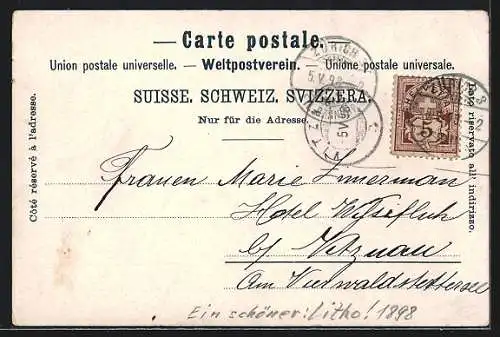 Carte postale.
Union postale universelle. — Weltpostverein. — Unione postale universale.
SUISSE. SCHWEIZ. SVIZZERA.
Nur für die Adresse.
Côté réservé à l'adresse.
Lato riservato all' indirizzo.
ZÜRICH
5.V.98
5
Frauen Marie Immerman
Hotel Wissifluh
b/ Vitznau
Am Vierwaldstettersee
Ein schöner: Litho! 1898